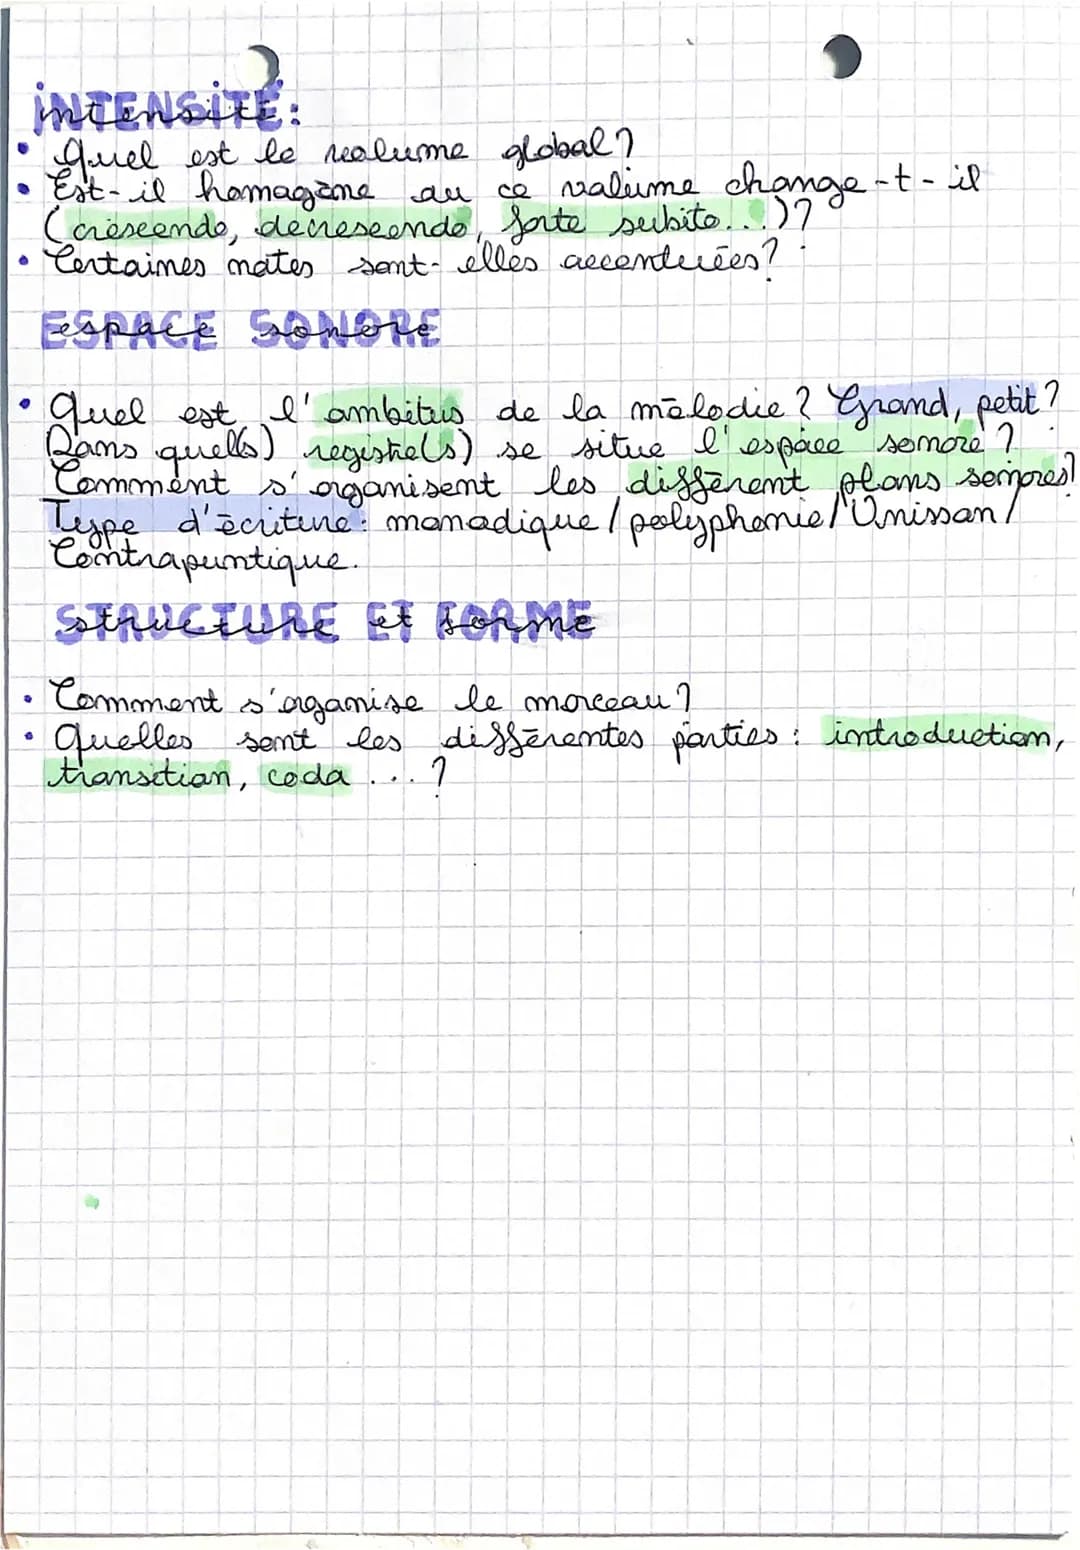 INTENSITÉ:
• Quel est le volume global ?
• Est-il homogène ou ce volume change-t-il
(crescendo, decrescendo, forte subito...) ?
• Certaines notes sont-elles accentuées ?
ESPACE SONORE
• Quel est l'ambitus de la mélodie ? Grand, petit ?
Dans quel(s) registre(s) se situe l'espace sonore ?
Comment s'organisent les différent plans sonores ?
Type d'écriture : monodique / polyphonie / Unisson /
Contrapuntique.
STRUCTURE ET FORME
• Comment s'organise le morceau ?
• Quelles sont les différentes parties : introduction,
transition, coda ... ?